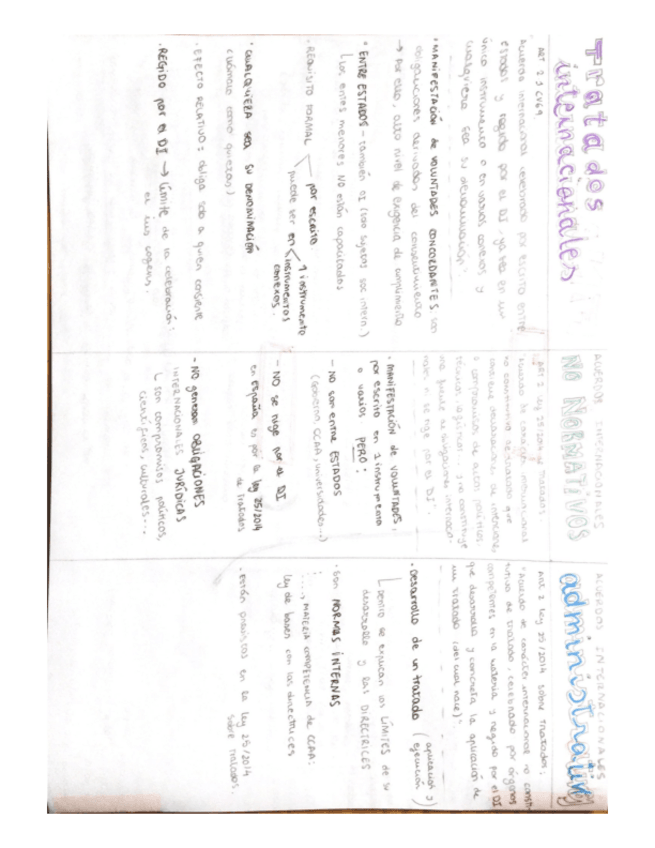 Tratados
internacionales
ART 2.1 CV69
"Acuerdo internacional celebrado por escrito entre
estados y regido por el DI, ya sea en un
único instrumento o en varios conexos y
cualquiera sea su denominación"
• MANIFESTACIÓN de VOLUNTADES CONCORDANTES. son
obligaciones derivadas del consentimiento
→ Por ello, alto nivel de exigencia de cumplimiento
• ENTRE ESTADOS - también OI (son sujetos soc intern.)
Los entes menores NO están capacitados
• REQUISITO FORMAL
por escrito
puede ser en
1 instrumento
instrumentos
conexos.
• CUALQUIERA sea su DENOMINACIÓN
(llámalo como quieras)
• EFECTO RELATIVO: obliga solo a quien consiente
• REGIDO por el DI → Límite de la celebración:
el ius cogens.
ACUERDOS INTERNACIONALES
NO NORMATIVOS
ART 2 Ley 25/2014 Tratados.
"Acuerdo de carácter internacional
no constitutivo de tratado que
que se
o compromisos de actuación
técnico, logístico... y no constituye
fuente de obligaciones internac.
ni se rige por el DI"
• MANIFESTACIÓN de VOLUNTADES,
por escrito en 1 instrumento
o varios PERO:
- NO son entre ESTADOS
(Gobierno CCAA, universidades...)
- NO se rige por el DI
en españa es por la ley 25/2014
de Tratados
- NO generan OBLIGACIONES
INTERNACIONALES JURÍDICAS
son compromisos políticos,
científicos, culturales...
ACUERDOS INTERNACIONALES
administrativos
ART 2 Ley 25/2014 sobre Tratados.
"Acuerdo de carácter internacional no consti-
tutivo de tratado, celebrado por órganos
competentes en la materia y regido por el DI
que desarrolla y concreta la aplicación de
un tratado (del cual nace)".
• Desarrollo de un tratado (aplicación y
ejecución)
dentro se explican los LÍMITES de su
desarrollo y las DIRECTRICES
• Son NORMAS INTERNAS
..., MATERIA COMPETENCIA de CCAA:
Ley de bases con las directrices
• Están previstos en la ley 25/2014
sobre tratados.